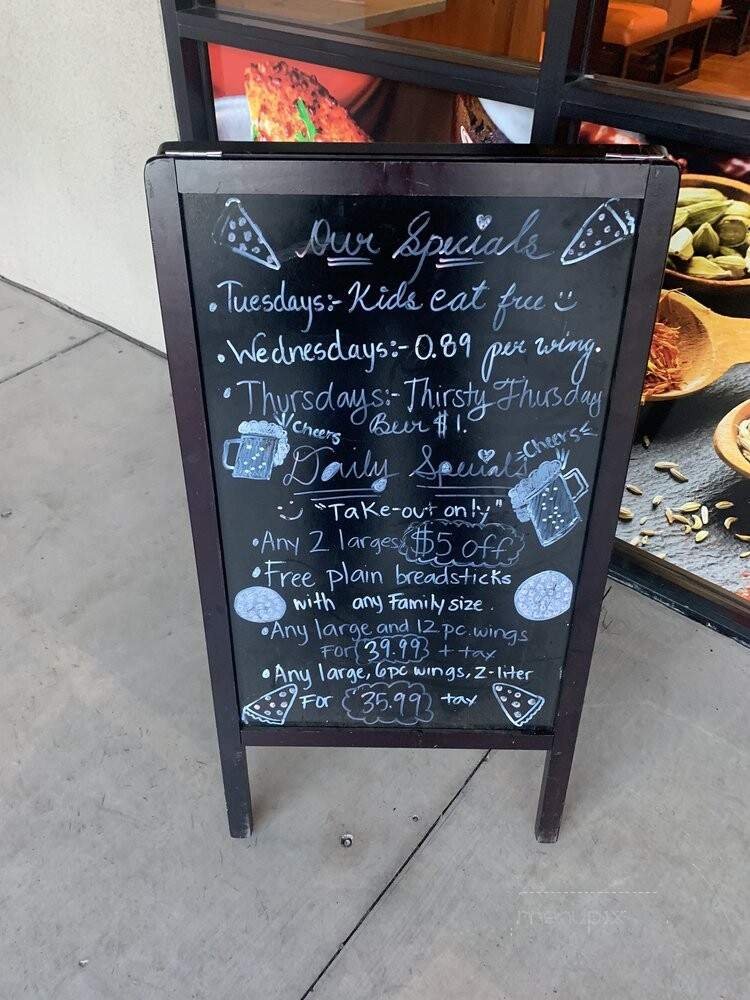 Our Specials
• Tuesdays:- Kids eat free
• Wednesdays:- 0.89 per wing.
• Thursdays:- Thirsty Thursday
Beer $1.
Cheers
Daily Specials
Cheers
"Take-out only"
• Any 2 larges $5 off
• Free plain breadsticks
with any Family size.
• Any large and 12 pc. wings
For 39.99 + tax
• Any large, 6pc wings, 2-liter
For 35.99 tax
menupix